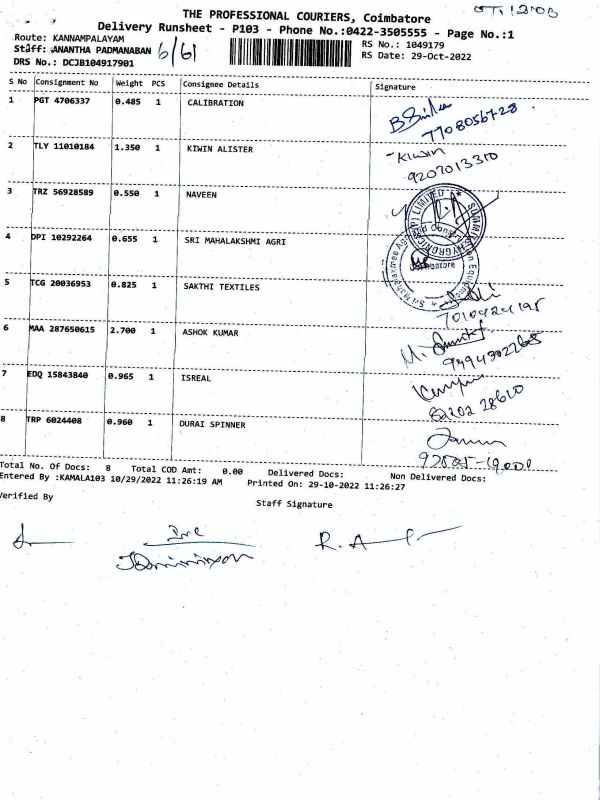 THE PROFESSIONAL COURIERS, Coimbatore
Delivery Runsheet - P103 - Phone No.:0422-3505555 - Page No.:1
Route: KANNAMPALAYAM
RS No.: 1049179
Staff: ANANTHA PADMANABAN 6/61
RS Date: 29-Oct-2022
DRS No.: DCJB104917901
S No Consignment No Weight PCS Consignee Details Signature
1 PGT 4706337 0.485 1 CALIBRATION
7708056728
2 TLY 11010184 1.350 1 KIWIN ALISTER
Kiwin
9207013310
3 TRZ 56928589 0.550 1 NAVEEN
4 DPI 10292264 0.655 1 SRI MAHALAKSHMI AGRI
5 TCG 20036953 0.825 1 SAKTHI TEXTILES
6 MAA 287650615 2.700 1 ASHOK KUMAR
7 EDQ 15843840 0.965 1 ISREAL
8 TRP 6024408 0.960 1 DURAI SPINNER
Total No. Of Docs: 8 Total COD Amt: 0.00 Delivered Docs: Non Delivered Docs:
Entered By :KAMALA103 10/29/2022 11:26:19 AM Printed On: 29-10-2022 11:26:27
Verified By
Staff Signature